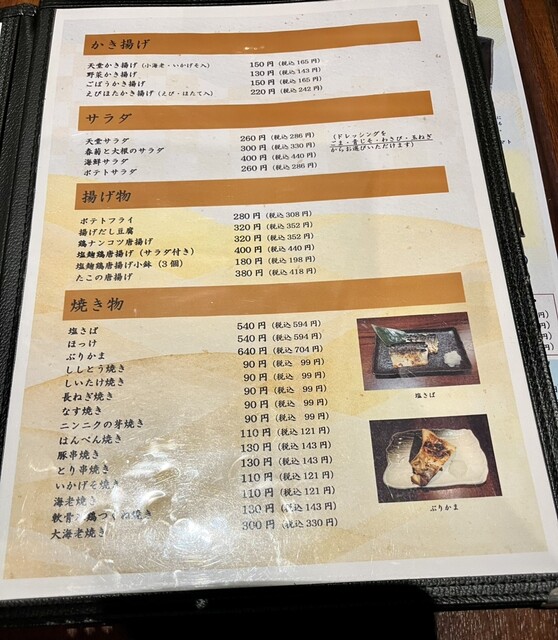 かき揚げ
天堂かき揚げ（小海老・いかげそ入） 150円（税込165円）
野菜かき揚げ 130円（税込143円）
ごぼうかき揚げ 150円（税込165円）
えびほたかき揚げ（えび・ほたて入） 220円（税込242円）
サラダ
天堂サラダ 260円（税込286円）
春菊と大根のサラダ 300円（税込330円）
海鮮サラダ 400円（税込440円）
ポテトサラダ 260円（税込286円）
（ドレッシングを
ごま・青じそ・わさび・玉ねぎ
からお選びいただけます）
揚げ物
ポテトフライ 280円（税込308円）
揚げだし豆腐 320円（税込352円）
鶏ナンコツ唐揚げ 320円（税込352円）
塩麹鶏唐揚げ（サラダ付き） 400円（税込440円）
塩麹鶏唐揚げ小鉢（3個） 180円（税込198円）
たこの唐揚げ 380円（税込418円）
焼き物
塩さば 540円（税込594円）
ほっけ 540円（税込594円）
ぶりかま 640円（税込704円）
ししとう焼き 90円（税込 99円）
しいたけ焼き 90円（税込 99円）
長ねぎ焼き 90円（税込 99円）
なす焼き 90円（税込 99円）
ニンニクの芽焼き 90円（税込 99円）
はんぺん焼き 110円（税込121円）
豚串焼き 130円（税込143円）
とり串焼き 130円（税込143円）
いかげそ焼き 110円（税込121円）
海老焼き 110円（税込121円）
軟骨 鶏つくね焼き 130円（税込143円）
大海老焼き 300円（税込330円）
塩さば
ぶりかま